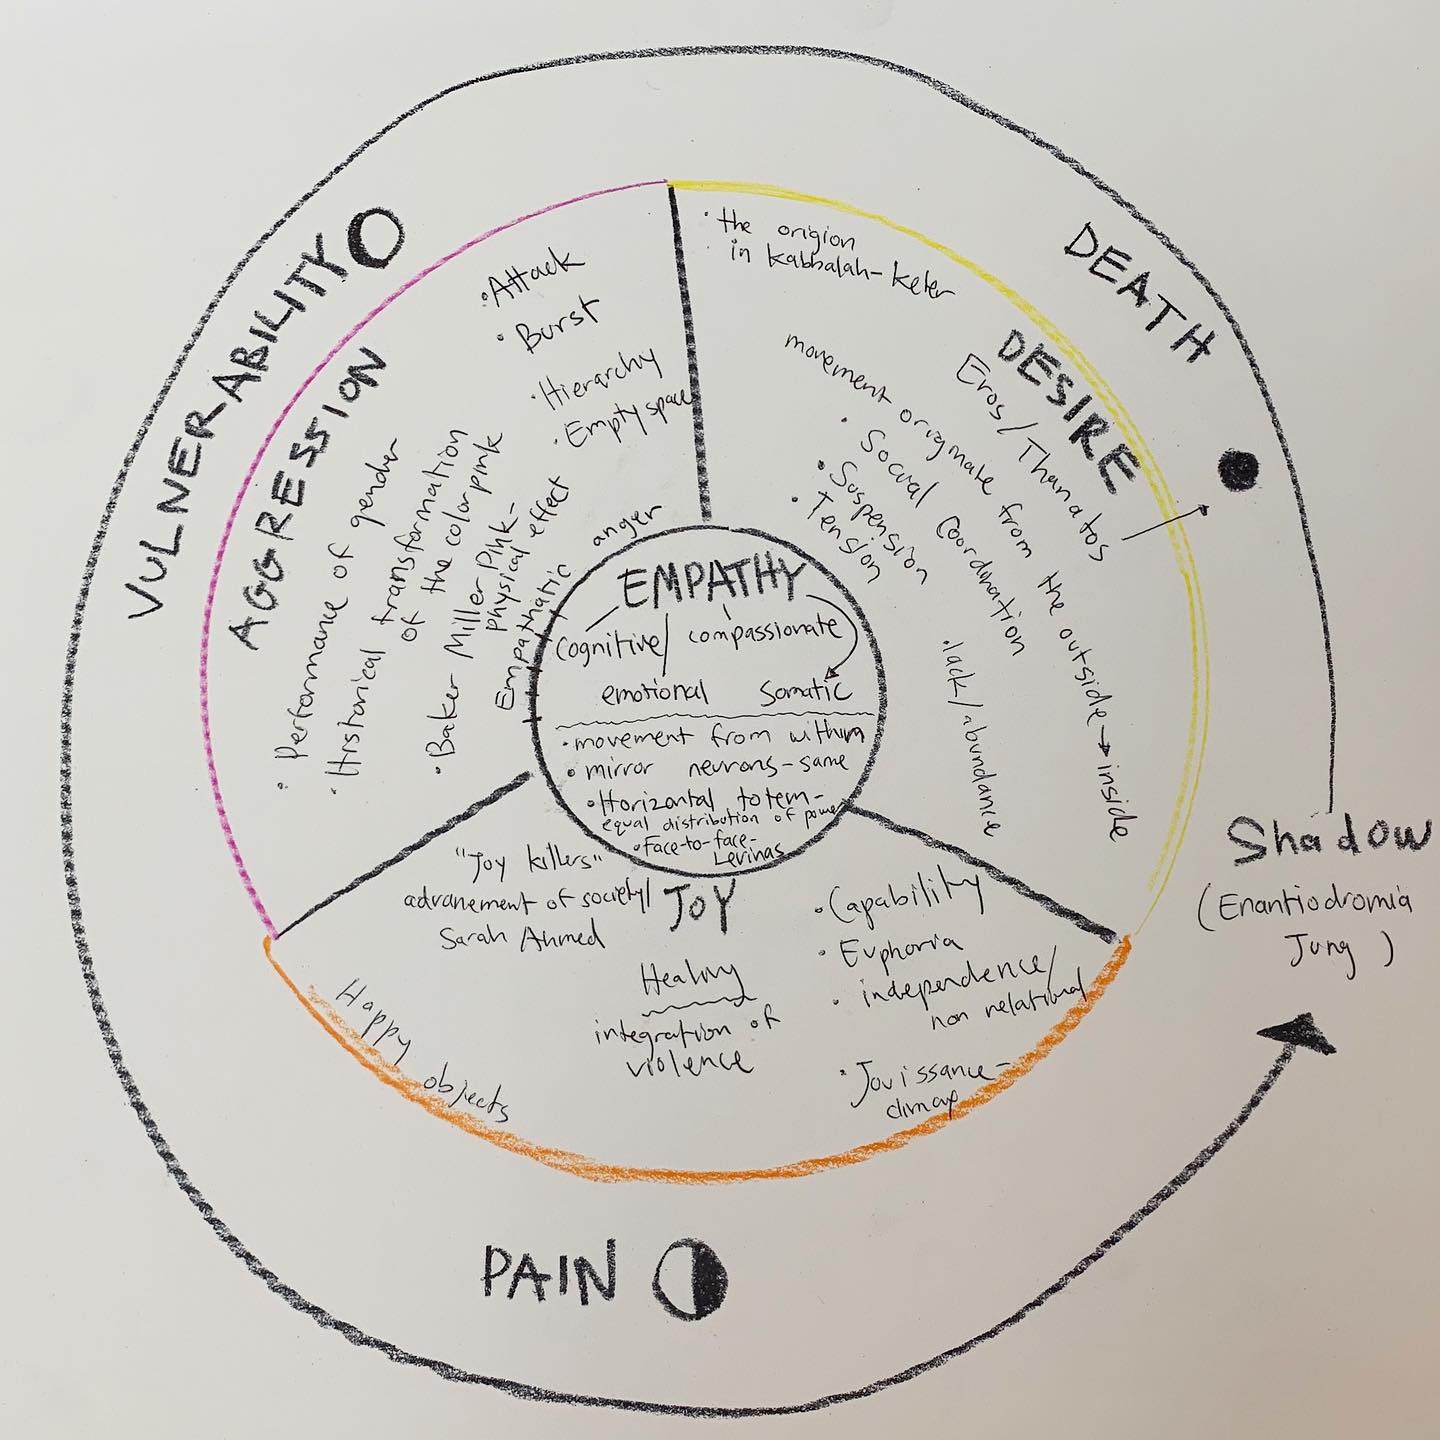 VULNERABILITY
AGGRESSION
• Attack
• Burst
• Hierarchy
• Empty space
• Performance of gender
• Historical transformation
of the color pink
• Baker Miller Pink-
physical effect
Empathatic
anger
DEATH
DESIRE
• the origion
in kabbalah-keter
Eros/Thanatos
movement originate from the outside→inside
• Social Coordination
• Suspension
• Tension
• lack/abundance
EMPATHY
Cognitive/ compassionate
emotional somatic
• movement from within
• mirror neurons-same
• Horizontal totem-
equal distribution of power
• face-to-face-
Levinas
JOY
"Joy killers"
advancement of society/
Sarah Ahmed
Happy objects
Healing
integration of
violence
• Capability
• Euphoria
• independence/
non relational
• Jouissance-
climax
PAIN
Shadow
(Enantiodromia
Jung)